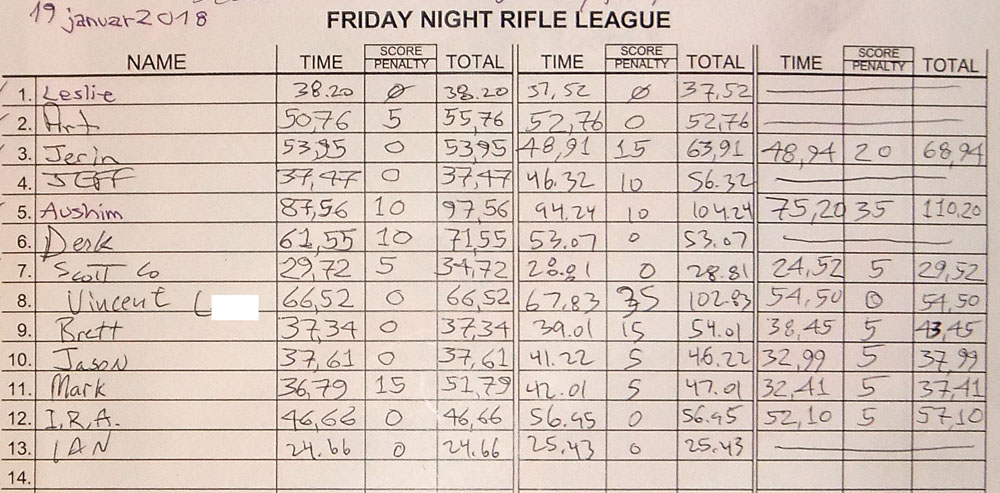 19 januar 2018
FRIDAY NIGHT RIFLE LEAGUE
NAME TIME SCORE PENALTY TOTAL TIME SCORE PENALTY TOTAL TIME SCORE PENALTY TOTAL
1. Leslie 38.20 0 38.20 37,52 0 37,52
2. Art 50,76 5 55,76 52,76 0 52,76
3. Jerin 53,95 0 53,95 48,91 15 63,91 48,94 20 68,94
4. JEFF 37,47 0 37,47 46.32 10 56.32
5. Aushim 87,56 10 97,56 94.24 10 104.24 75,20 35 110,20
6. Derk 61,55 10 71,55 53.07 0 53.07
7. Scott Co 29,72 5 34,72 28.81 0 28.81 24,52 5 29,52
8. Vincent L 66,52 0 66,52 67.83 35 102.83 54,50 0 54,50
9. Brett 37,34 0 37,34 39.01 15 54.01 38,45 5 43,45
10. Jason 37,61 0 37,61 41.22 5 46.22 32,99 5 37,99
11. Mark 36,79 15 51,79 42.01 5 47.01 32,41 5 37,41
12. I.R.A. 46,66 0 46,66 56.95 0 56.95 52,10 5 57,10
13. IAN 24.66 0 24.66 25.43 0 25.43
14.